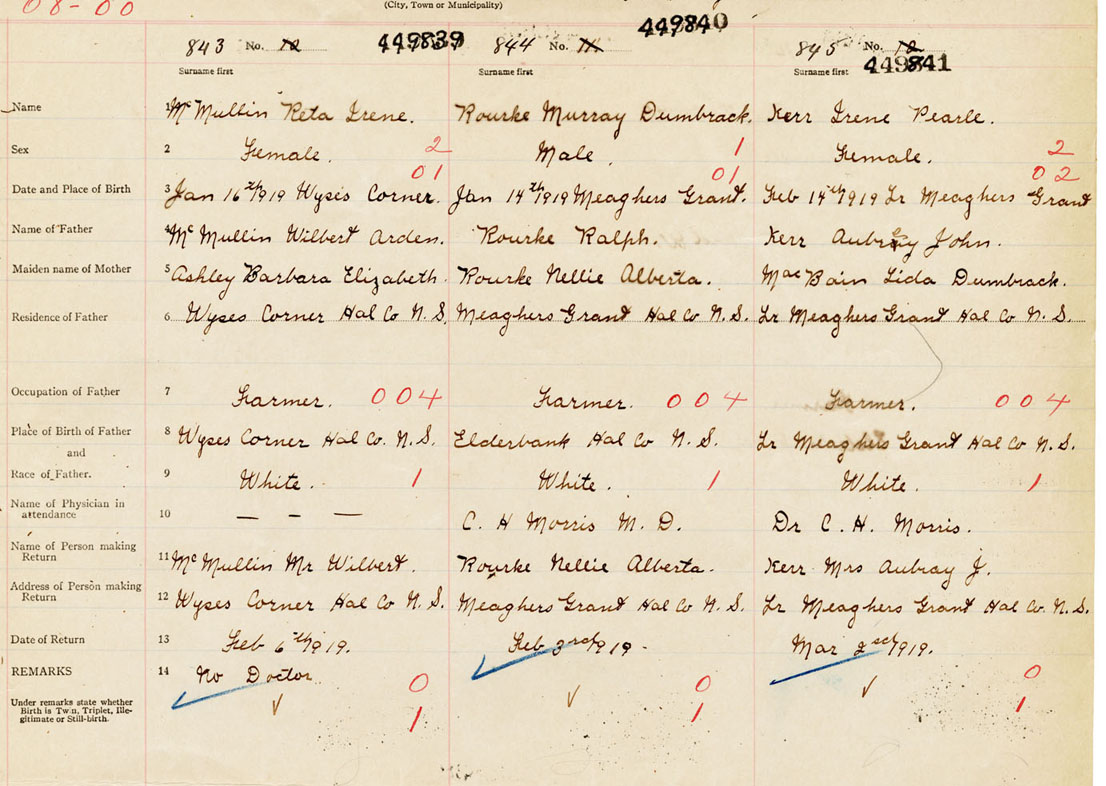 08-00
(City, Town or Municipality)
843 No. 12 449839 844 No. 11 449840 845 No. 12 449841
Surname first Surname first Surname first
Name 1 McMullin Reta Irene. Rourke Murray Dumbrack. Kerr Irene Pearle.
Sex 2 Female. 2 Male. 1 Female. 2
01 01 02
Date and Place of Birth 3 Jan 16th 1919 Wyses Corner. Jan 14th 1919 Meaghers Grant. Feb 14th 1919 Lr Meaghers Grant
Name of Father 4 McMullin Wilbert Arden. Rourke Ralph. Kerr Aubrey John.
Maiden name of Mother 5 Ashley Barbara Elizabeth. Rourke Nellie Alberta. MacBain Lida Dumbrack.
Residence of Father 6 Wyses Corner Hal Co N.S. Meaghers Grant Hal Co N.S. Lr Meaghers Grant Hal Co N.S.
Occupation of Father 7 Farmer. 004 Farmer. 004 Farmer. 004
Place of Birth of Father 8 Wyses Corner Hal Co. N.S. Elderbank Hal Co N.S. Lr Meaghers Grant Hal Co N.S.
and
Race of Father. 9 White. 1 White. 1 White. 1
Name of Physician in
attendance 10 — – — C. H Morris M.D. Dr C. H. Morris.
Name of Person making
Return 11 McMullin Mr Wilbert. Rourke Nellie Alberta. Kerr Mrs Aubray J.
Address of Person making
Return 12 Wyses Corner Hal Co N.S. Meaghers Grant Hal Co N.S. Lr Meaghers Grant Hal Co. N.S.
Date of Return 13 Feb 6th 1919. Feb 3rd 1919. Mar 2nd 1919.
REMARKS 14 No Doctor 0 0 0
Under remarks state whether
Birth is Twin, Triplet, Ille-
gitimate or Still-birth. 1 1 1